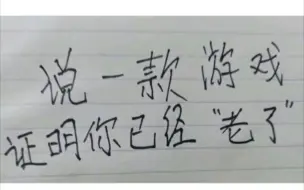 说一款游戏
证明你已经“老了”